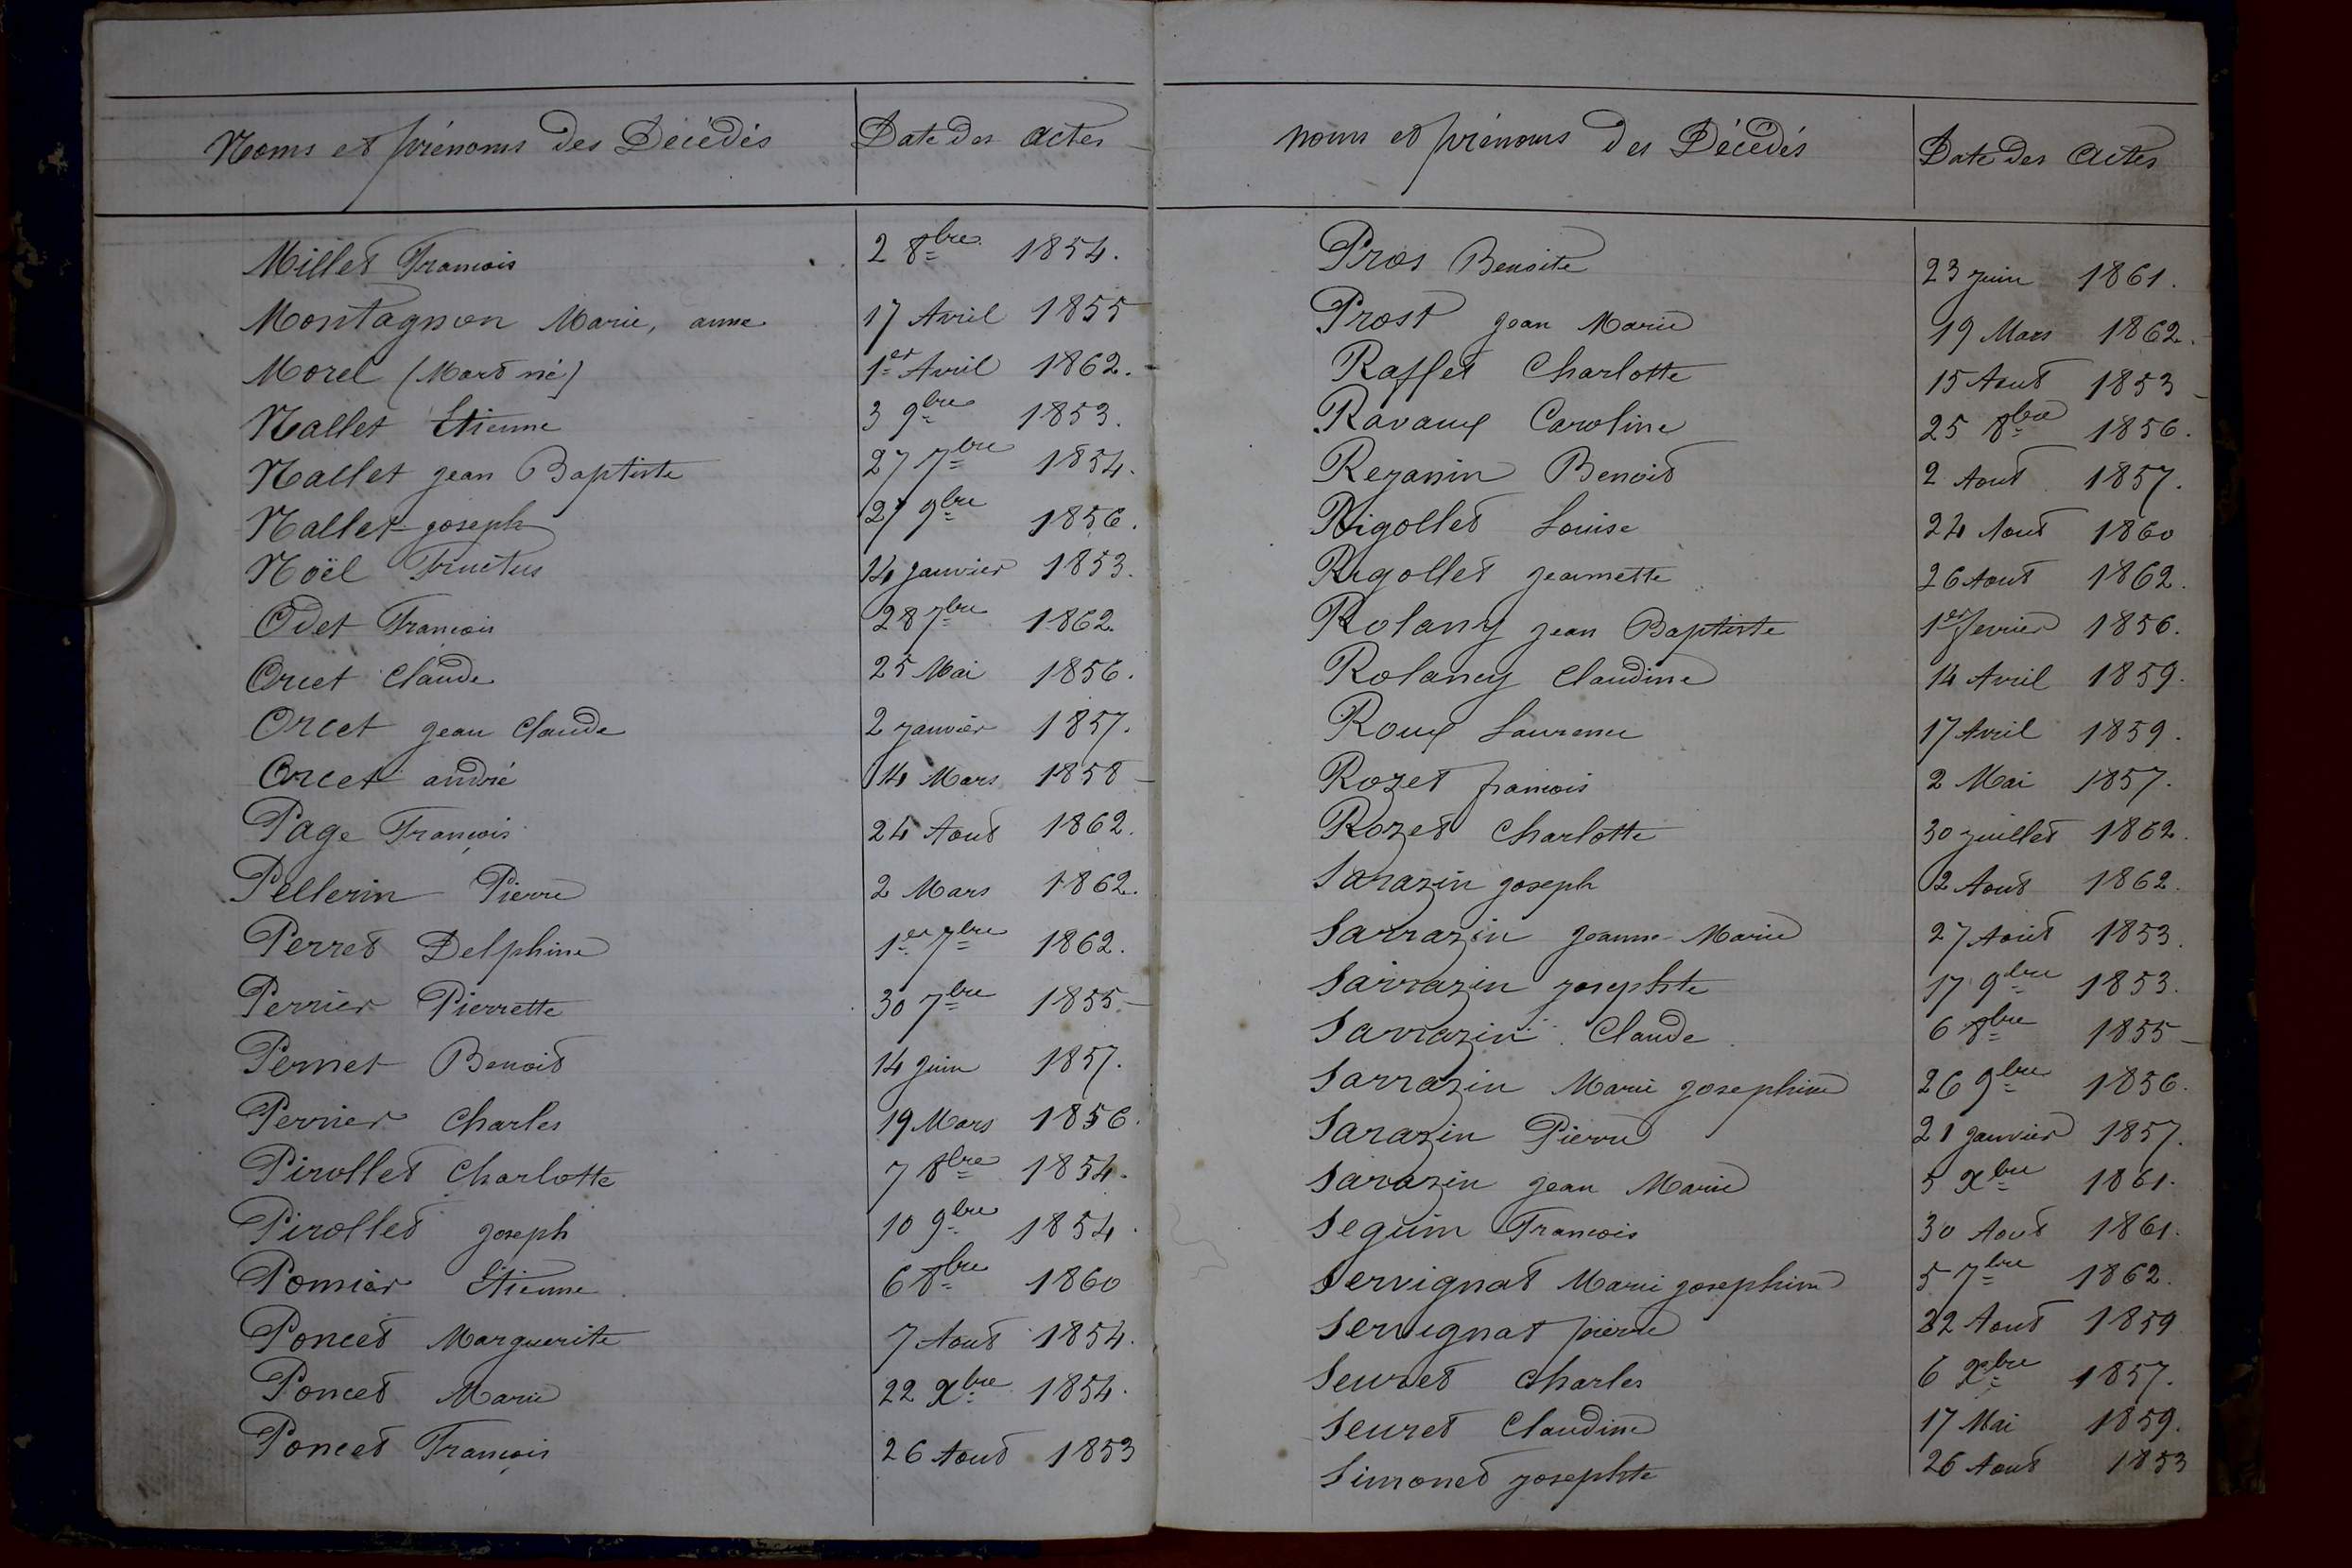 Noms et prénoms des Décédés Date des actes
Millet Francois 2 8bre 1854.
Montagnon Marie, anne 17 Avril 1855
Morel (Mort né) 1er Avril 1862.
Nallet Etienne 3 9bre 1853.
Nallet jean Baptiste 27 7bre 1854.
Nallet joseph 27 9bre 1856.
Noël Fructus 14 janvier 1853.
Odet Francois 28 7bre 1862.
Orcet Claude 25 Mai 1856.
Orcet jean Claude 2 janvier 1857.
Orcet andré 14 Mars 1858
Page François 24 Aout 1862.
Pellerin Pierre 2 Mars 1862.
Perret Delphine 1er 7bre 1862.
Perrier Pierrette 30 7bre 1855
Pernet Benoit 14 juin 1857.
Perrier Charles 19 Mars 1856.
Pirollet Charlotte 7 8bre 1854.
Pirollet joseph 10 9bre 1854.
Pomier Etienne 6 8bre 1860
Poncet Marguerite 7 Aout 1854.
Poncet Marie 22 Xbre 1854.
Poncet François 26 Aout 1853
noms et prénoms des Décédés Date des actes
Pros Benoite 23 juin 1861.
Prost jean Marie 19 Mars 1862.
Raffet Charlotte 15 Aout 1853
Ravaux Caroline 25 8bre 1856.
Rezanin Benoit 2 Aout 1857.
Rigollet Louise 24 Aout 1860
Rigollet jeannette 26 Aout 1862.
Rolany jean Baptiste 1er fevrier 1856.
Rolancy Claudine 14 Avril 1859.
Roux Laurence 17 Avril 1859.
Rozet francois 2 Mai 1857.
Rozet Charlotte 30 juillet 1862.
Sarazin joseph 2 Aout 1862.
Sarrazin jeanne Marie 27 Août 1853.
Sarrazin josephte 17 9bre 1853.
Sarrazin Claude 6 8bre 1855
Sarrazin Marie josephine 26 9bre 1856.
Sarazin Pierre 21 janvier 1857.
Sarazin jean Marie 5 Xbre 1861.
Seguin Francois 30 Aout 1861.
Servignat Marie josephine 5 7bre 1862.
Servignat pierre 22 Aout 1859
Seuret Charles 6 Xbre 1857.
Seuret Claudine 17 Mai 1859.
Simonet josephte 26 Aout 1853